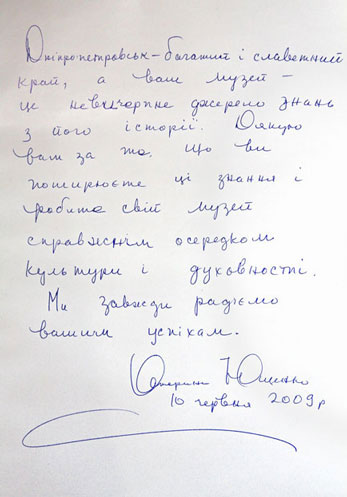 Дніпропетровськ – багатий і славетний
край, а ваш музей –
це невичерпне джерело знань
з його історії. Дякую
вам за те, що ви
поширюєте ці знання і
робите свій музей
справжнім осередком
культури і духовності.
Ми завжди радіємо
вашим успіхам.
Катерина Ющенко
10 червня 2009 р